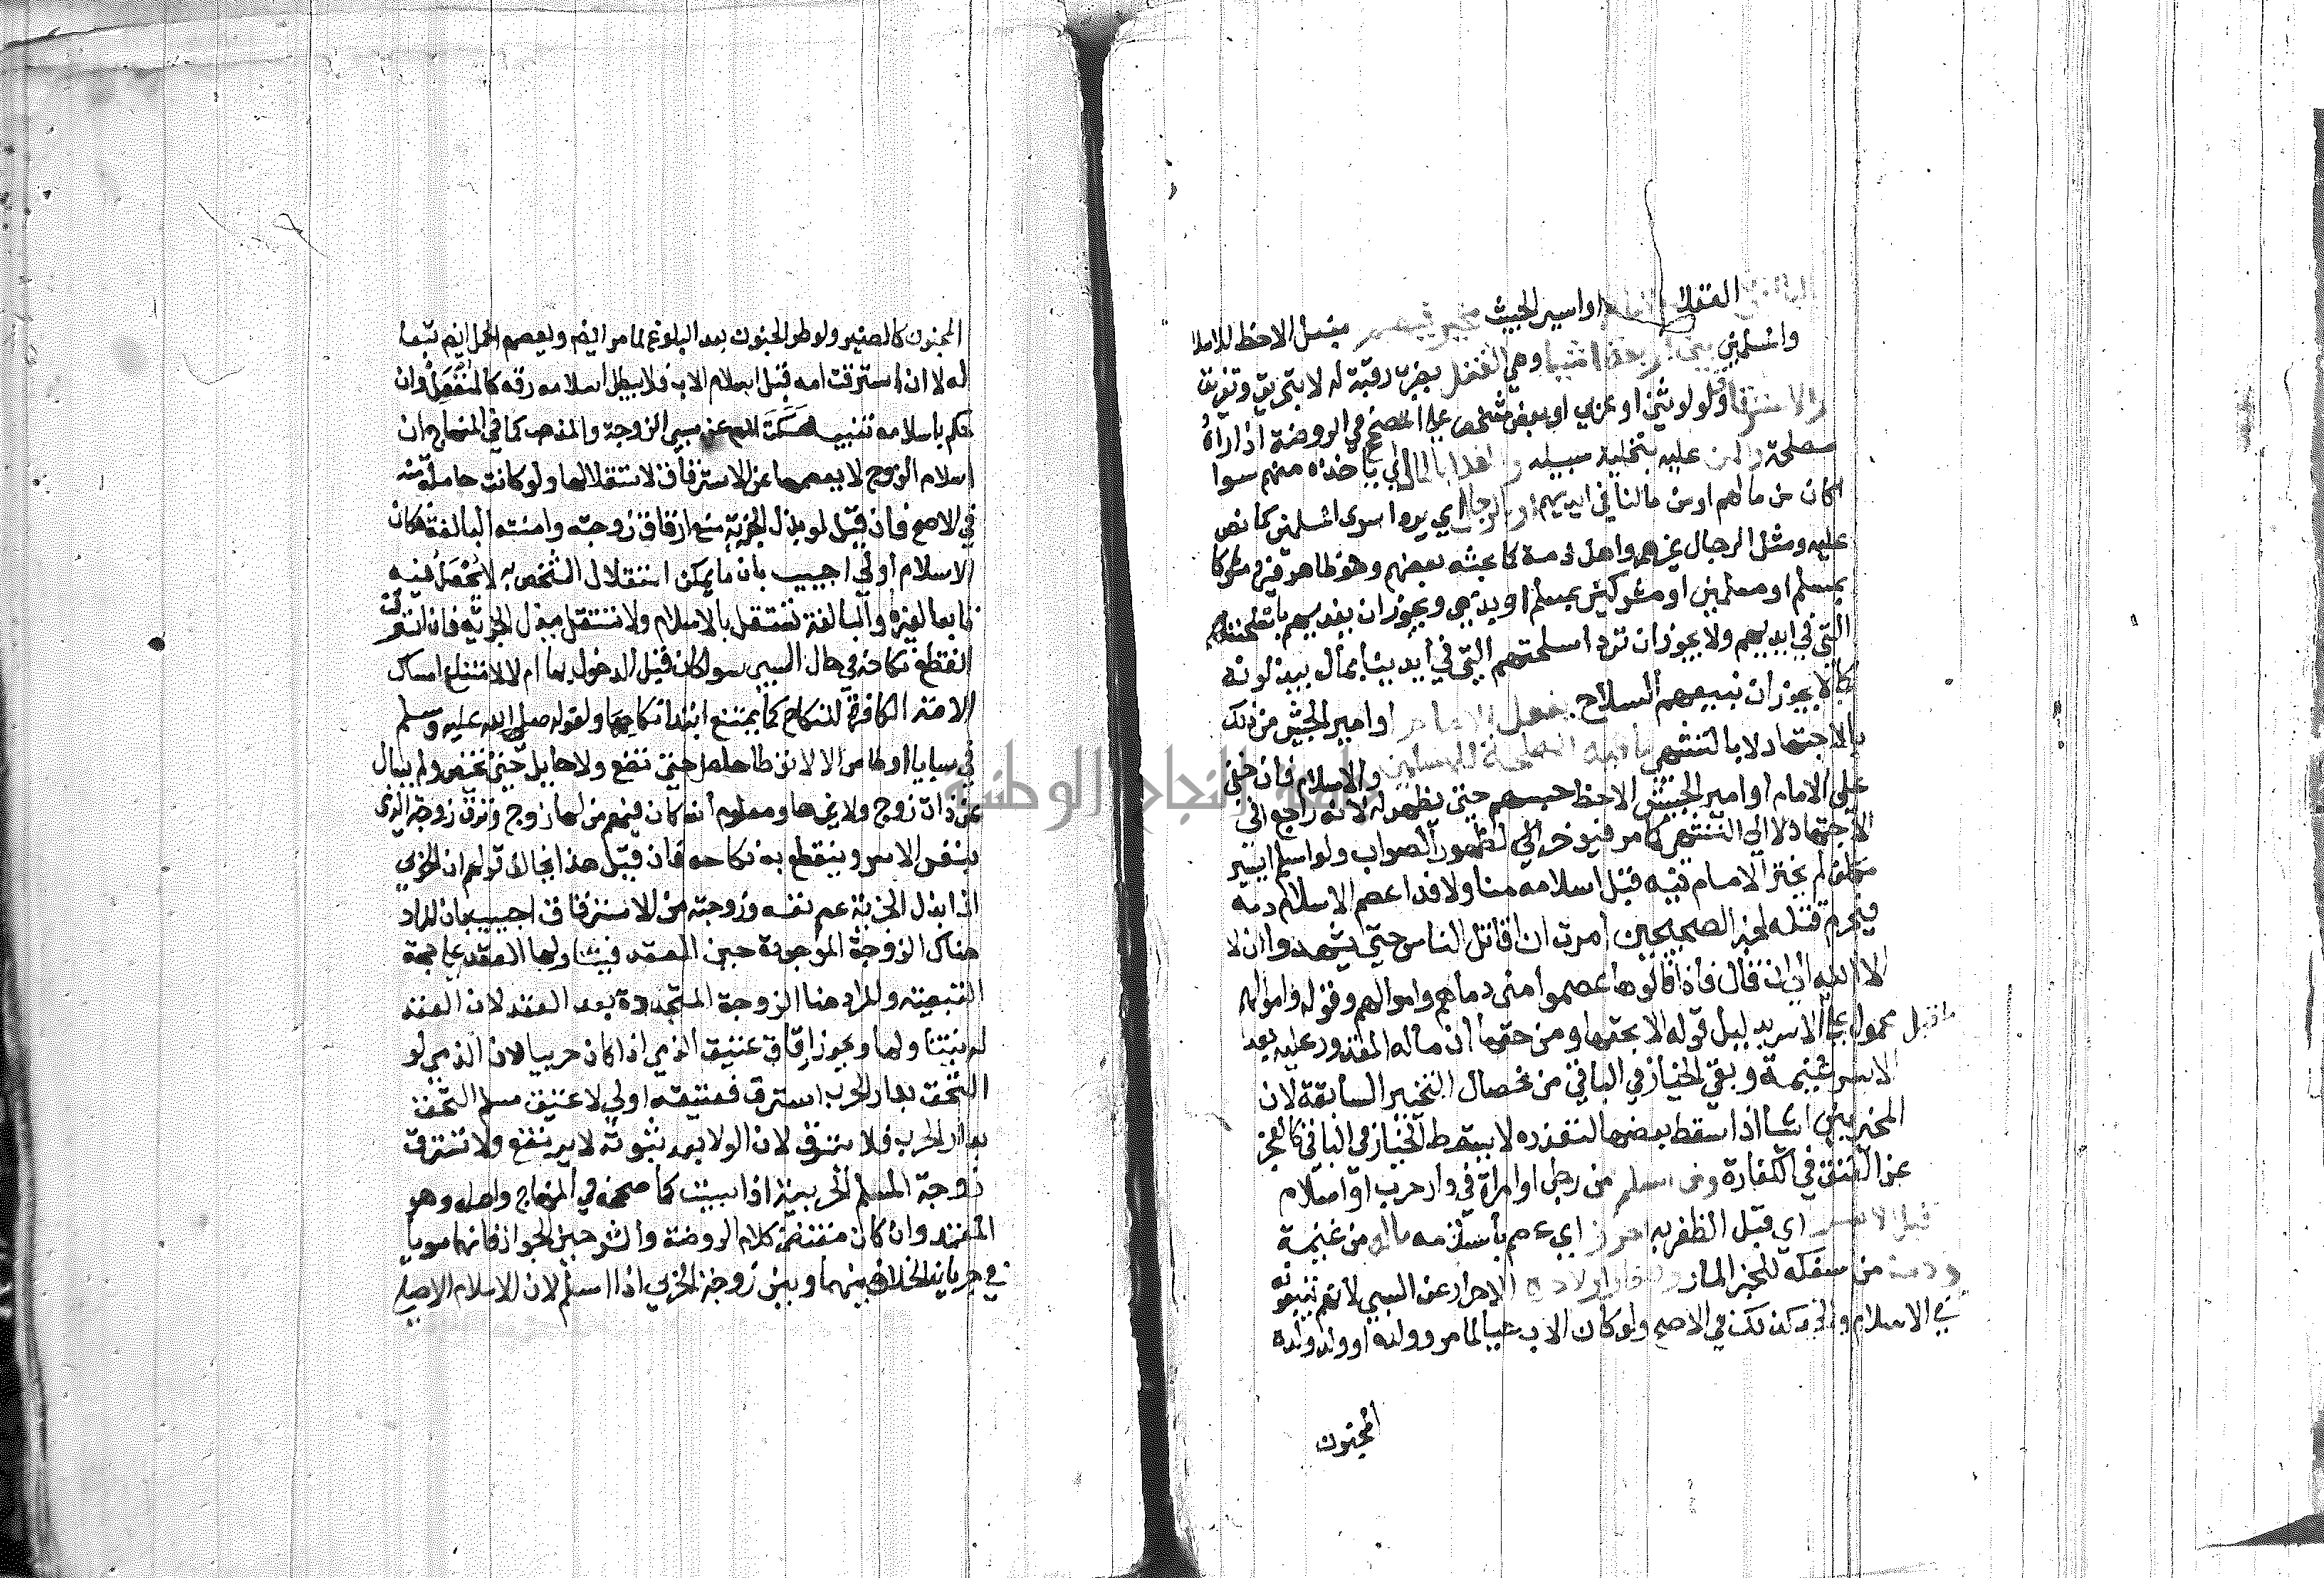 العقلا الامام او امير الجيش مخير فيهم بفعل الاحظ للاسلام
والمسلمين بين اربعة اشيا وهي القتل بضرب رقبة له لا بتحريق وتغريق
والاسترقاق ولو لوثني او عربي او بعض شخص علي المصحح في الروضة اذا راه
مصلحة والمن عليه بتخلية سبيله والفدا بالمال اي ياخذه منهم سوا
اكان من مالهم او من مالنا في ايديهم او بالرجال اي يردوا اسرى المسلمين كما نص
عليه ومثل الرجال غيرهم واهل ذمة كما بحثه بعضهم وهو ظاهر فيرد مشركا
بمسلم او مسلمين او مشركين بمسلم او بذمي ويجوز ان يفديهم باسلحتنا
التي في ايديهم ولا يجوز ان نرد اسلحتهم التي في ايدينا بمال يبذلونه
كما لا يجوز ان نبيعهم السلاح يفعل الامام او امير الجيش من ذلك
بالاجتهاد لا بالتشهي ما فيه المصلحة للمسلمين والاسلام فان خفي
على الامام او امير الجيش الاحظ حبسهم حتى يظهر له لانه راجع الى
الاجتهاد لا الى التشهي كما مر فيوخر الي لظهور الصواب ولو اسلم اسير
مكلف لم يختر الامام فيه قبل اسلامه منا ولا فدا عصم الاسلام دمه
فيحرم قتله لخبر الصحيحين امرت ان اقاتل الناس حتى يشهدوا ان لا
اله الا الله الى ان قال فاذا قالوها عصموا مني دماهم واموالهم وقوله واموالهم
محمول على ما قبل الاسر بدليل قوله الا بحقها ومن حقها ان ماله المقدور عليه بعد
الاسر غنيمة وبقي الخيار في الباقي من خصال التخيير السابقة لان
المخير بين اشيا اذا سقط بعضها لتعذره لا يسقط الخيار في الباقي كالعجز
عن العتق في الكفارة ومن اسلم من رجل او امراة في دار حرب او اسلام
قبل الاسر اي قبل الظفر به احرز اي عصم باسلامه ماله من غنيمة
ودمه من سفكه للخبر المار وصغار اولاده الاحرار عن السبي لانهم يتبعونه
في الاسلام والجد كذلك في الاصح ولو كان الاب حيا لما مر وولده او ولد ولده
المجنون
المجنون كالصغير ولو طرا الجنون بعد البلوغ لما مر ايضا ويعصم الحمل ايضا تبعا
له لا ان استرقت امه قبل اسلام الاب فلا يبطل اسلامه رقه كالمنفصل وان
حكم باسلامه تنبيه سكت المصنف عن سبي الزوجة والمذهب كما في المنهاج ان
اسلام الزوج لا يعصمها عن الاسترقاق لاستقلالها ولو كانت حاملا منه
في الاصح فان قيل لو بذل الجزية منع ارقاق زوجته وابنته البالغة فكان
الاسلام اولى اجيب بان ما يمكن استقلال الشخص به لا يجعل فيه
تابعا لغيره والبالغة تستقل بالاسلام ولا تستقل ببذل الجزية فان استرقت
انقطع نكاحه في حال السبي سوا كان قبل الدخول بها ام لا لامتناع امساك
الامة الكافرة للنكاح كما يمتنع ابتدا نكاحها ولقوله صلى الله عليه وسلم
في سبايا اوطاس الا لا توطا حامل حتى تضع ولا حايل حتى تحيض ولم يسال
عن ذات زوج ولا غيرها ومعلوم انه كان فيهم من لها زوج وترق زوجة الذمي
بنفس الاسر وينقطع به نكاحه فان قيل هذا يخالف قولهم ان الحربي
اذا بذل الجزية عصم نفسه وزوجته من الاسترقاق اجيب بان المراد
هناك الزوجة الموجودة حين العقد فيتناولها العقد على جهة
التبعية والمراد هنا الزوجة المتجددة بعد العقد لان العقد
لم يتناولها ويجوز ارقاق عتيق الذمي اذا كان حربيا لان الذمي لو
التحق بدار الحرب استرق فعتيقه اولى لا عتيق مسلم التحق
بدار الحرب فلا يسترق لان الولا بعد ثبوته لا يرتفع ولا تسترق
زوجة المسلم الحربية اذا سبيت كما صححه في المنهاج واصله وهو
المعتمد وان كان مقتضى كلام الروضة والشرحين الجواز فانهما سويا
في جريان الخلاف بينها وبين زوجة الحربي اذا اسلم لان الاسلام الاصلي
جامعة النجاح الوطنية